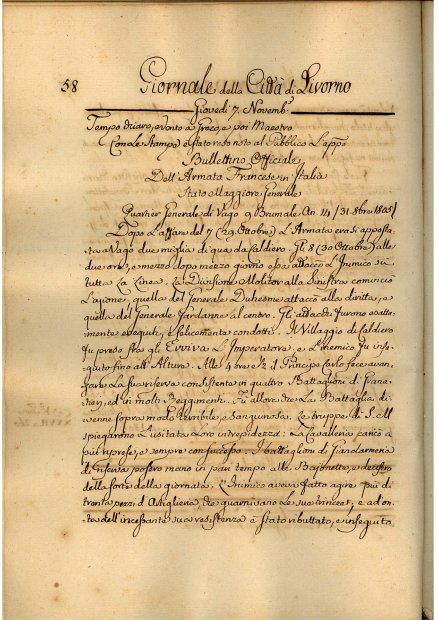 58 Giornale della Città di Livorno
Giovedì 7. Novemb.
Tempo chiaro, e vento a Greco, e poi Maestro.
Con le Stampe è stato reso noto al Pubblico l'appo
Bullettino Officiale
Dell'Armata Francese in Italia
Stato Maggiore Generale
Quartier Generale di Vago 9 Brumale. An. 14 / 31. 8bre 1805/
Dopo l'affare del 7 (29. Ottobre) L'Armata erasi apposta-
ta a Vago due miglia di qua da Caldiero. Gli 8 (30 Ottobre) alle
due ore, e mezzo dopo mezzo giorno essa attaccò l'Inimico su
tutta La Linea. La Divisione Molitor alla Sinistra cominciò
L'azione; quella del Generale Duhesme attaccò alla diritta, e
quella del Generale Gardanne al centro. Gli attacchi furono esatta-
mente eseguiti, e felicemente condotti. Il Villaggio di Caldiero
fu preso fra gli Evviva L'Imperatore, e L'inemico fu inse-
guito fino all'Alture. Alle 4 ore e ½ il Principe Carlo fece avan-
zare La sua riserva consistente in quattro Battaglioni di Grana-
tieri, ed in molti Reggimenti. Fu allora che La Battaglia di-
venne sopra modo terribile, e Sanguinosa. Le truppe di S. M.
spiegarono L'usitata Loro intrepidezza: La Cavalleria caricò a
più riprese, e sempre con successo. I battaglioni di Granatieri
di riserva posero mano in pari tempo alle Bajonette, e decisero
della sorte della giornata. L'Inimico aveva fatto agire più di
trenta pezzi d'Artiglieria, che guarnivano Le sue trincee; e ad on-
ta dell'incessante sua resistenza è stato ributtato, e inseguito